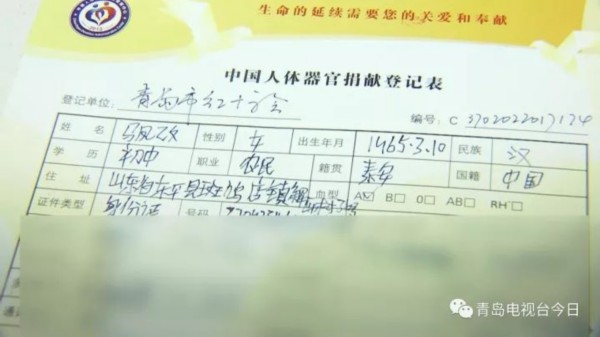 生命的延续需要您的关爱和奉献
中国人体器官捐献登记表
登记单位: 青岛市红十字会 编号: C 3702022017174
姓名 性别 女 出生年月 1965.3.10 民族 汉
学历 初中 职业 农民 籍贯 泰安 国籍 中国
住址 山东省东平县斑鸠店镇 血型 A B O AB RH
证件类型 身份证 号码
青岛电视台今日